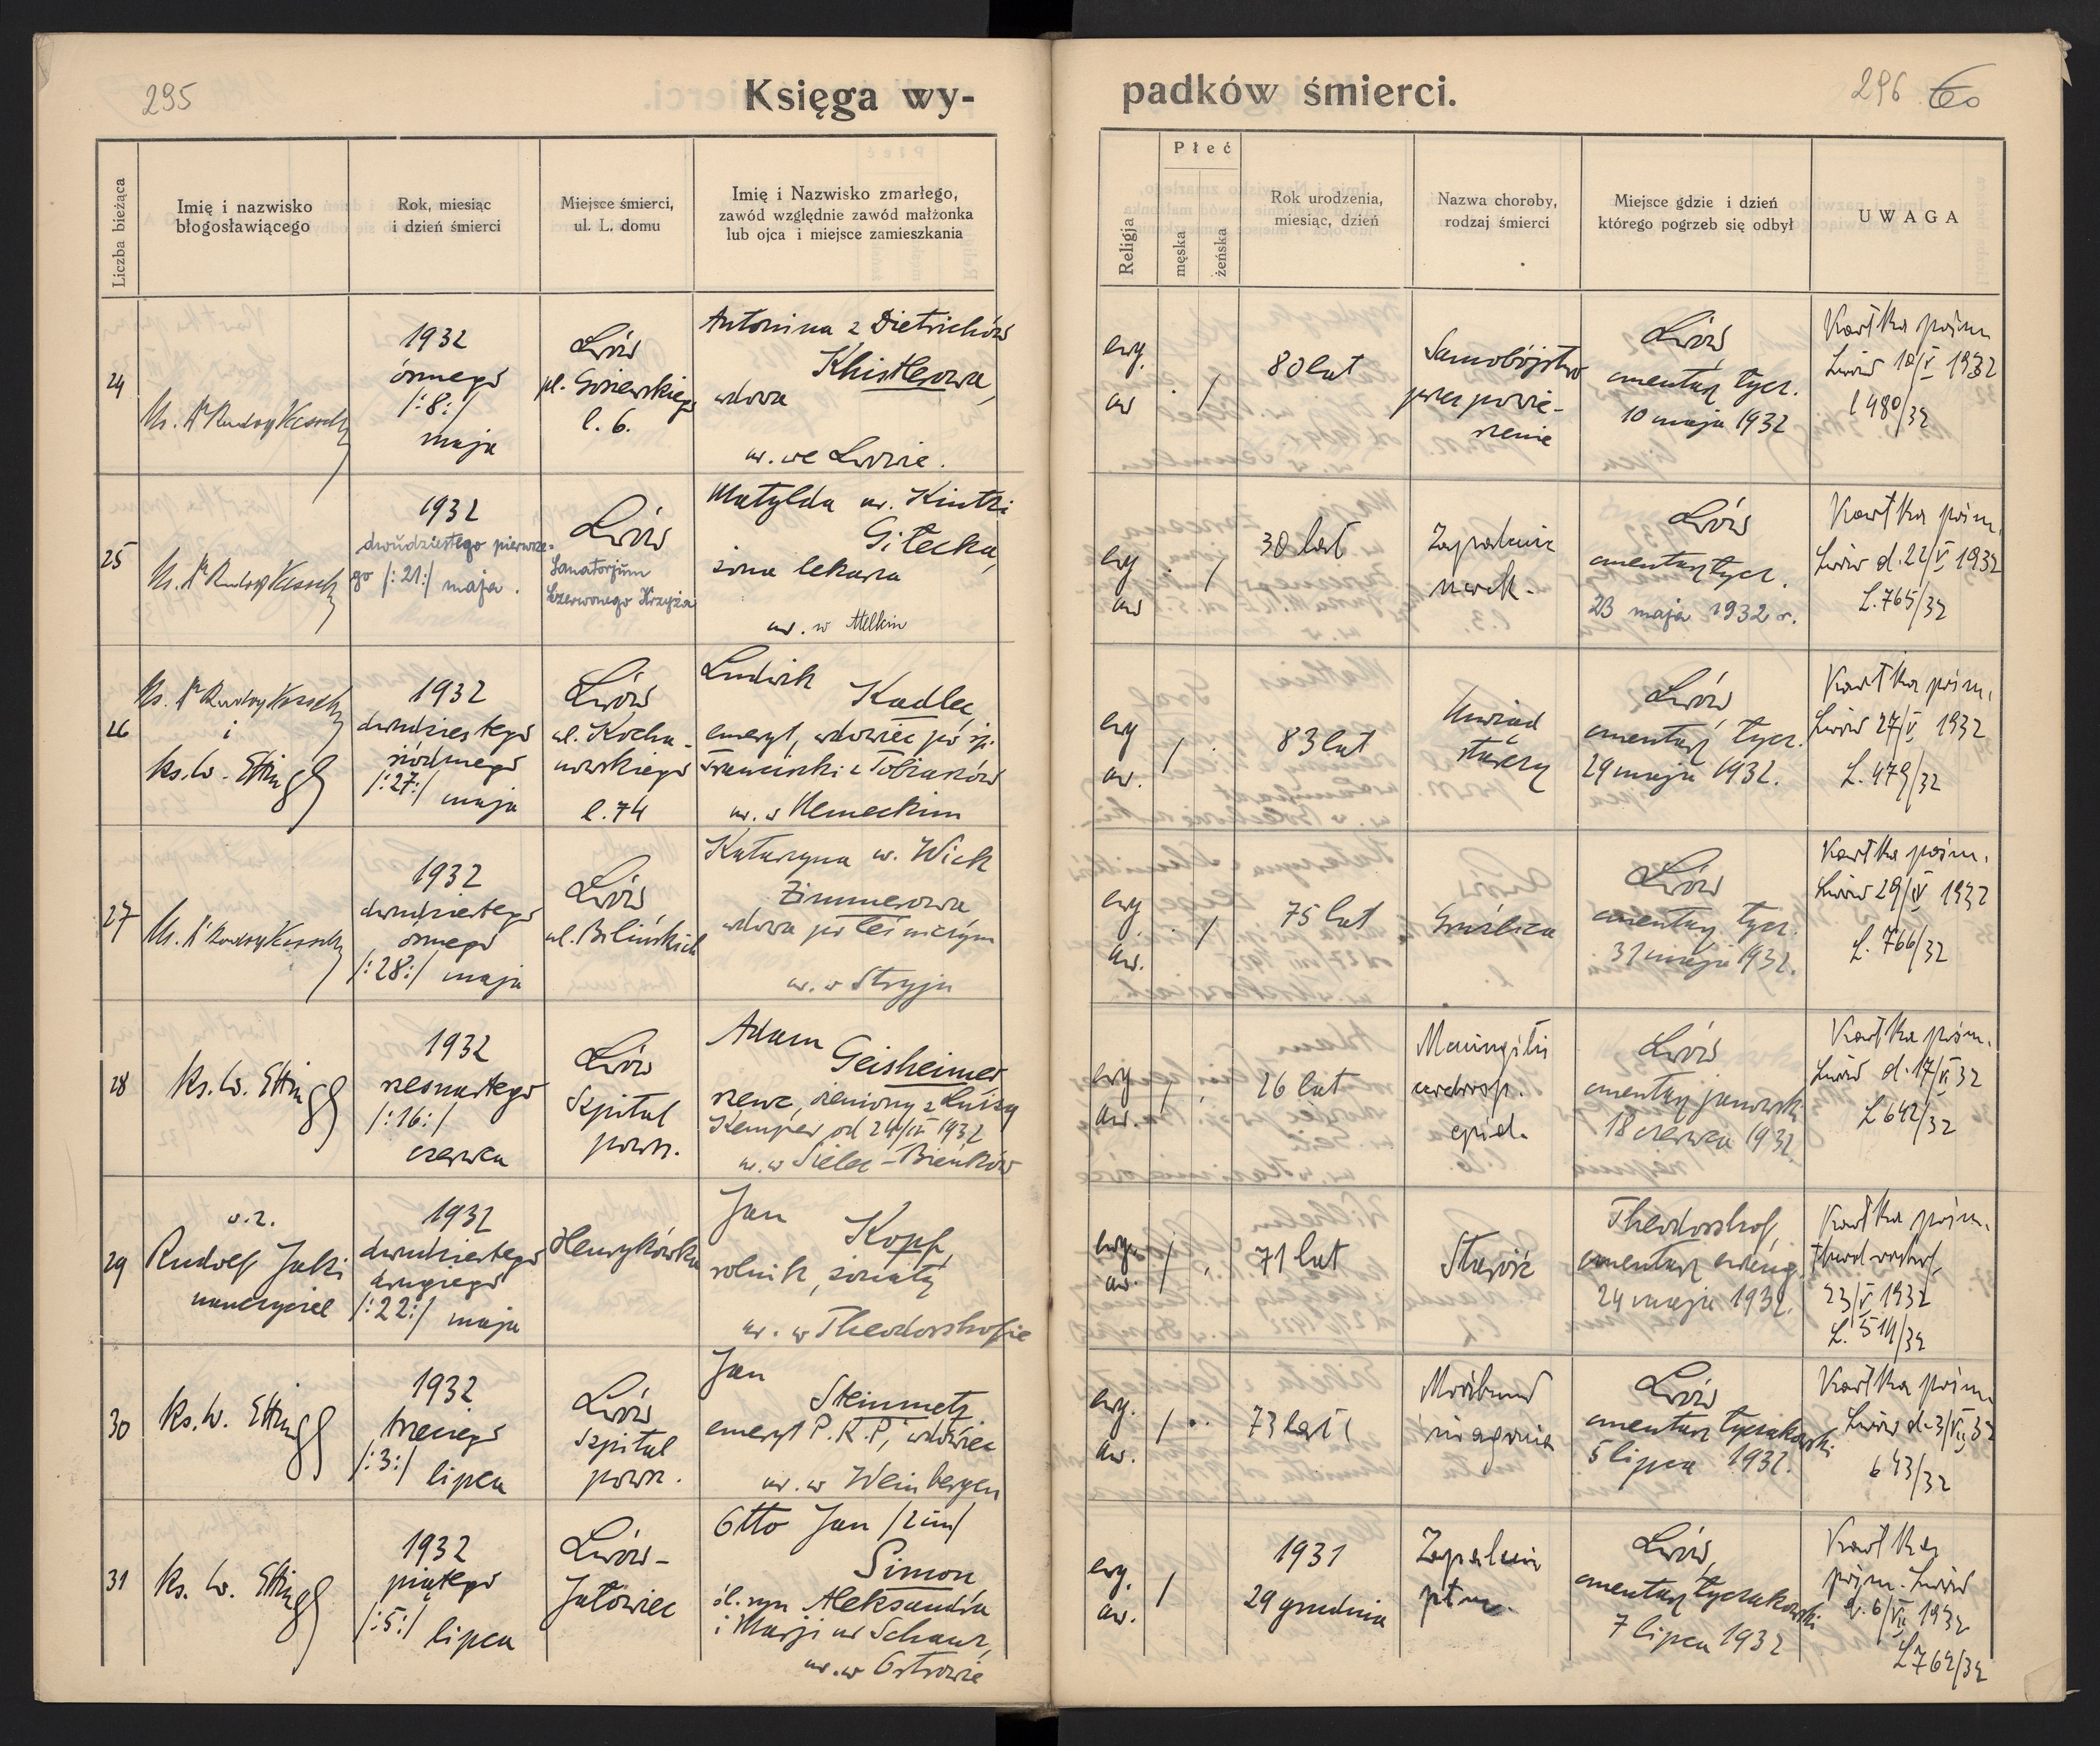 295
Księga wy-
padków śmierci.
296 60
Liczba bieżąca
Imię i nazwisko
błogosławiącego
Rok, miesiąc
i dzień śmierci
Miejsce śmierci,
ul. L. domu
Imię i Nazwisko zmarłego,
zawód względnie zawód małżonka
lub ojca i miejsce zamieszkania
Religja
Płeć
męska
żeńska
Rok urodzenia,
miesiąc, dzień
Nazwa choroby,
rodzaj śmierci
Miejsce gdzie i dzień
którego pogrzeb się odbył
UWAGA
24
Ks. Dr Rudolf Kesselring
1932
ósmego
/:8:/
maja
Lwów
pl. Gosiewskiego
l. 6.
Antonina z Dietrichów
Khistlerowa,
wdowa
ur. we Lwowie.
ew.
au
/
80 lat
Samobójstwo
przez powie-
szenie
Lwów
cmentarz łycz.
10 maja 1932
Kartka pośm.
Lwów 10/V 1932
l 480/32
25
Ks. Dr Rudolf Kesselring
1932
dwudziestego pierwsze-
go /:21:/ maja.
Lwów
Sanatorjum
Czerwonego Krzyża
Matylda ur. Kintzi
Gitecka,
żona lekarza
ur. w
ew
au
/
30 lat
Zapalenie
nerek.
Lwów
cmentarz łycz.
23 maja 1932 r.
Kartka pośm.
Lwów d. 22/V 1932
L. 765/32
26
Ks. Dr Rudolf Kesselring
i
ks. W. Ettinger
1932
dwudziestego
siódmego
/:27:/ maja
Lwów
ul. Kocha-
nowskiego
l. 74
Ludwik
Kadlec,
emeryt, wdowiec po śp.
Franciszki z
ur. w Nemeckim
ew
au.
/
83 lat
Uwiąd
starczy
Lwów
cmentarz łycz.
29 maja 1932.
Kartka pośm.
Lwów 27/V 1932
L. 479/32
27
Ks. Dr Rudolf Kesselring
1932
dwudziestego
ósmego
/:28:/ maja
Lwów
ul. Bilińskich
Katarzyna ur. Wick
Zimmerowa
wdowa po leśniczym
ur. w Stryju
ew
au.
/
75 lat
Gruźlica
Lwów
cmentarz łycz.
31 maja 1932.
Kartka pośm.
Lwów 29/V 1932
L. 766/32
28
ks. W. Ettinger
1932
szesnastego
/:16:/
czerwca
Lwów
Szpital
powsz.
Adam
Geisheimer,
szewc, żeniony z Luizą
Kemper od 1932
ur. w Sielec-Bieńków
ew.
au.
/
26 lat
Meningitis
cerebrosp.
epid.
Lwów
cmentarz janowsk.
18 czerwca 1932.
Kartka pośm.
Lwów d. 17/VI 32
L 642/32
29
w. z.
Rudolf Jaki
nauczyciel
1932
dwudziestego
drugiego
/:22:/ maja
Henrykówka
Jan
Kopf,
rolnik, żonaty
ur. w Theodorshofie
ew.
au.
/
71 lat
Starość
Theodorshof,
cmentarz ewang.
24 maja 1932.
Kartka pośm.
Theodorshof,
23/V 1932
L. 514/32
30
ks. W. Ettinger
1932
trzeciego
/:3:/ lipca
Lwów
Szpital
powsz.
Jan
Steinmetz
emeryt P.K.P., wdowiec
ur. w Weinbergen
ew.
au.
/
73 lat
Moribund
in agonia
Lwów
cmentarz łyczakowski
5 lipca 1932.
Kartka pośm.
Lwów d. 3/VII 32
643/32
31
ks. W. Ettinger
1932
piątego
/:5:/ lipca
Lwów-
Jałowiec
Otto Jan /2 im/
Simon
śl. syn Aleksandra
i Marji ur Schanz,
ur. w Ostrowie
ew.
au.
/
1931
29 grudnia
Zapalenie
płuc.
Lwów,
cmentarz łyczakowski
7 lipca 1932
Kartka
pośm. Lwów
d. 6/VII 1932
L 762/32